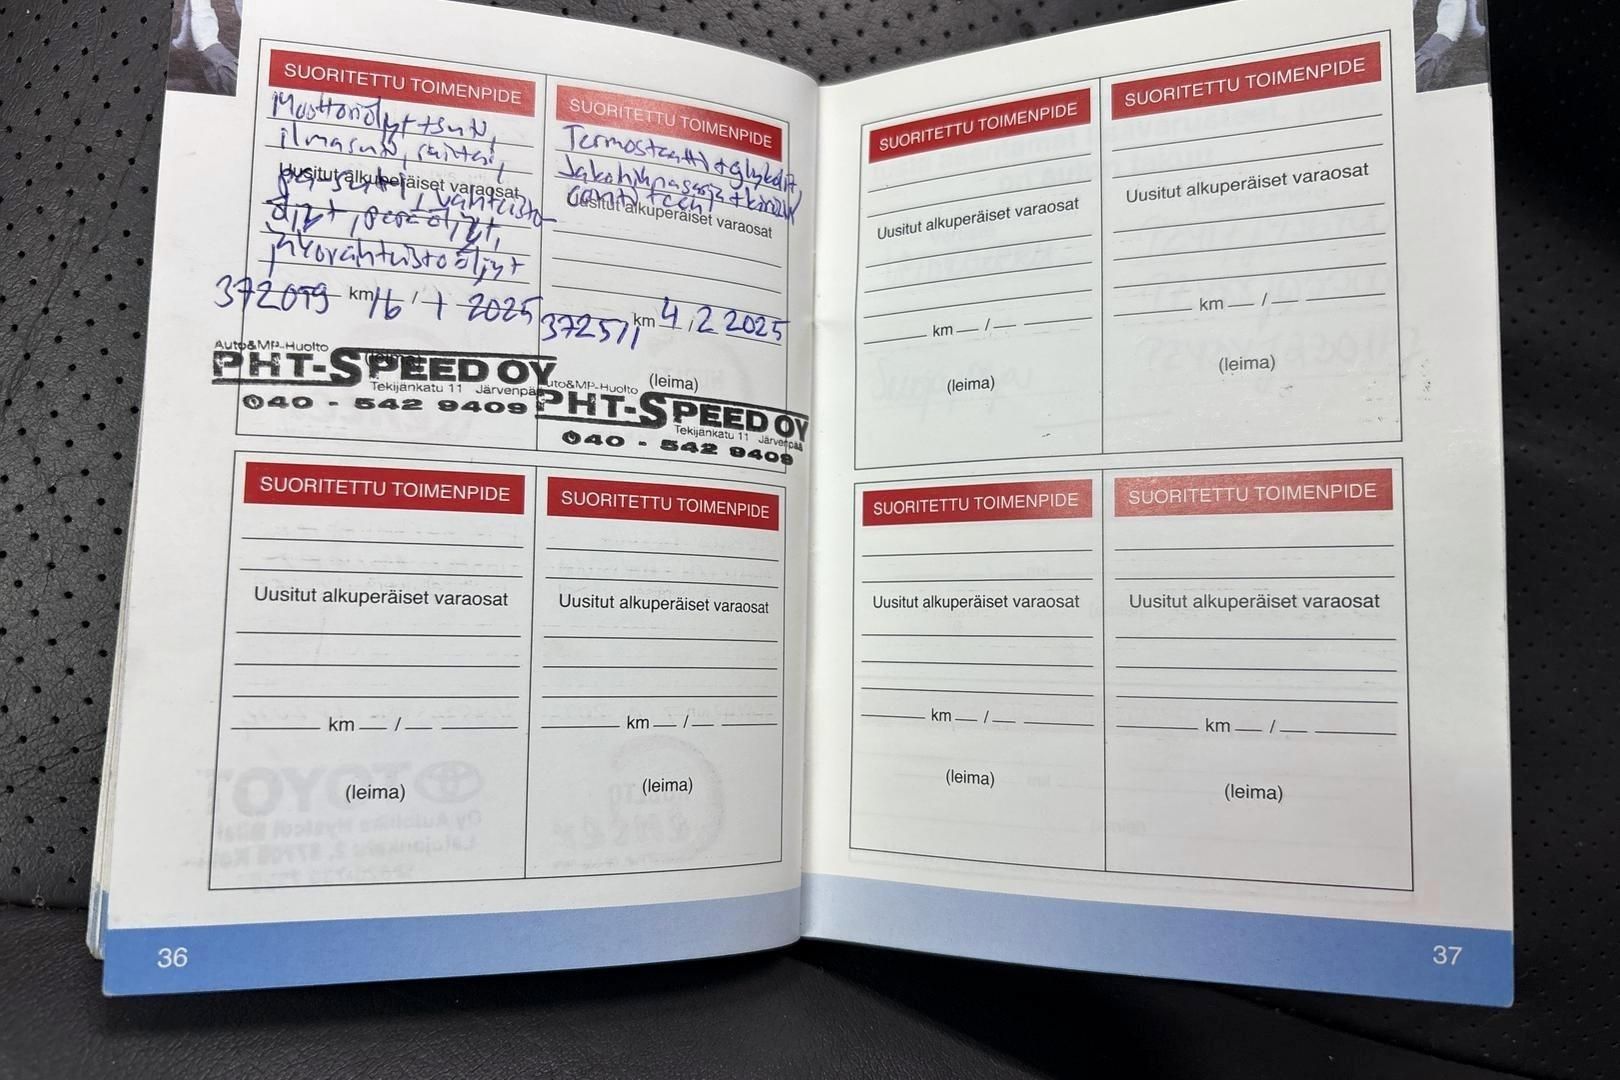 SUORITETTU TOIMENPIDE
ilmasuod,
Uusitut alkuperäiset varaosat
öljyt, peräöljyt,
jakovaihteistoöljyt
372099 km 16 / 1 2025
(leima)
Auto&MP-Huolto
PHT-SPEED OY
Tekijänkatu 11 Järvenpää
040 - 542 9409
SUORITETTU TOIMENPIDE
Termostaatti + glykolit,
Jakohihnasarja +
Uusitut alkuperäiset varaosat
372511 km 4 / 2 2025
(leima)
Auto&MP-Huolto
PHT-SPEED OY
Tekijänkatu 11 Järvenpää
040 - 542 9409
SUORITETTU TOIMENPIDE
Uusitut alkuperäiset varaosat
km / 
(leima)
SUORITETTU TOIMENPIDE
Uusitut alkuperäiset varaosat
km / 
(leima)
36
SUORITETTU TOIMENPIDE
Uusitut alkuperäiset varaosat
km / 
(leima)
SUORITETTU TOIMENPIDE
Uusitut alkuperäiset varaosat
km / 
(leima)
SUORITETTU TOIMENPIDE
Uusitut alkuperäiset varaosat
km / 
(leima)
SUORITETTU TOIMENPIDE
Uusitut alkuperäiset varaosat
km / 
(leima)
37